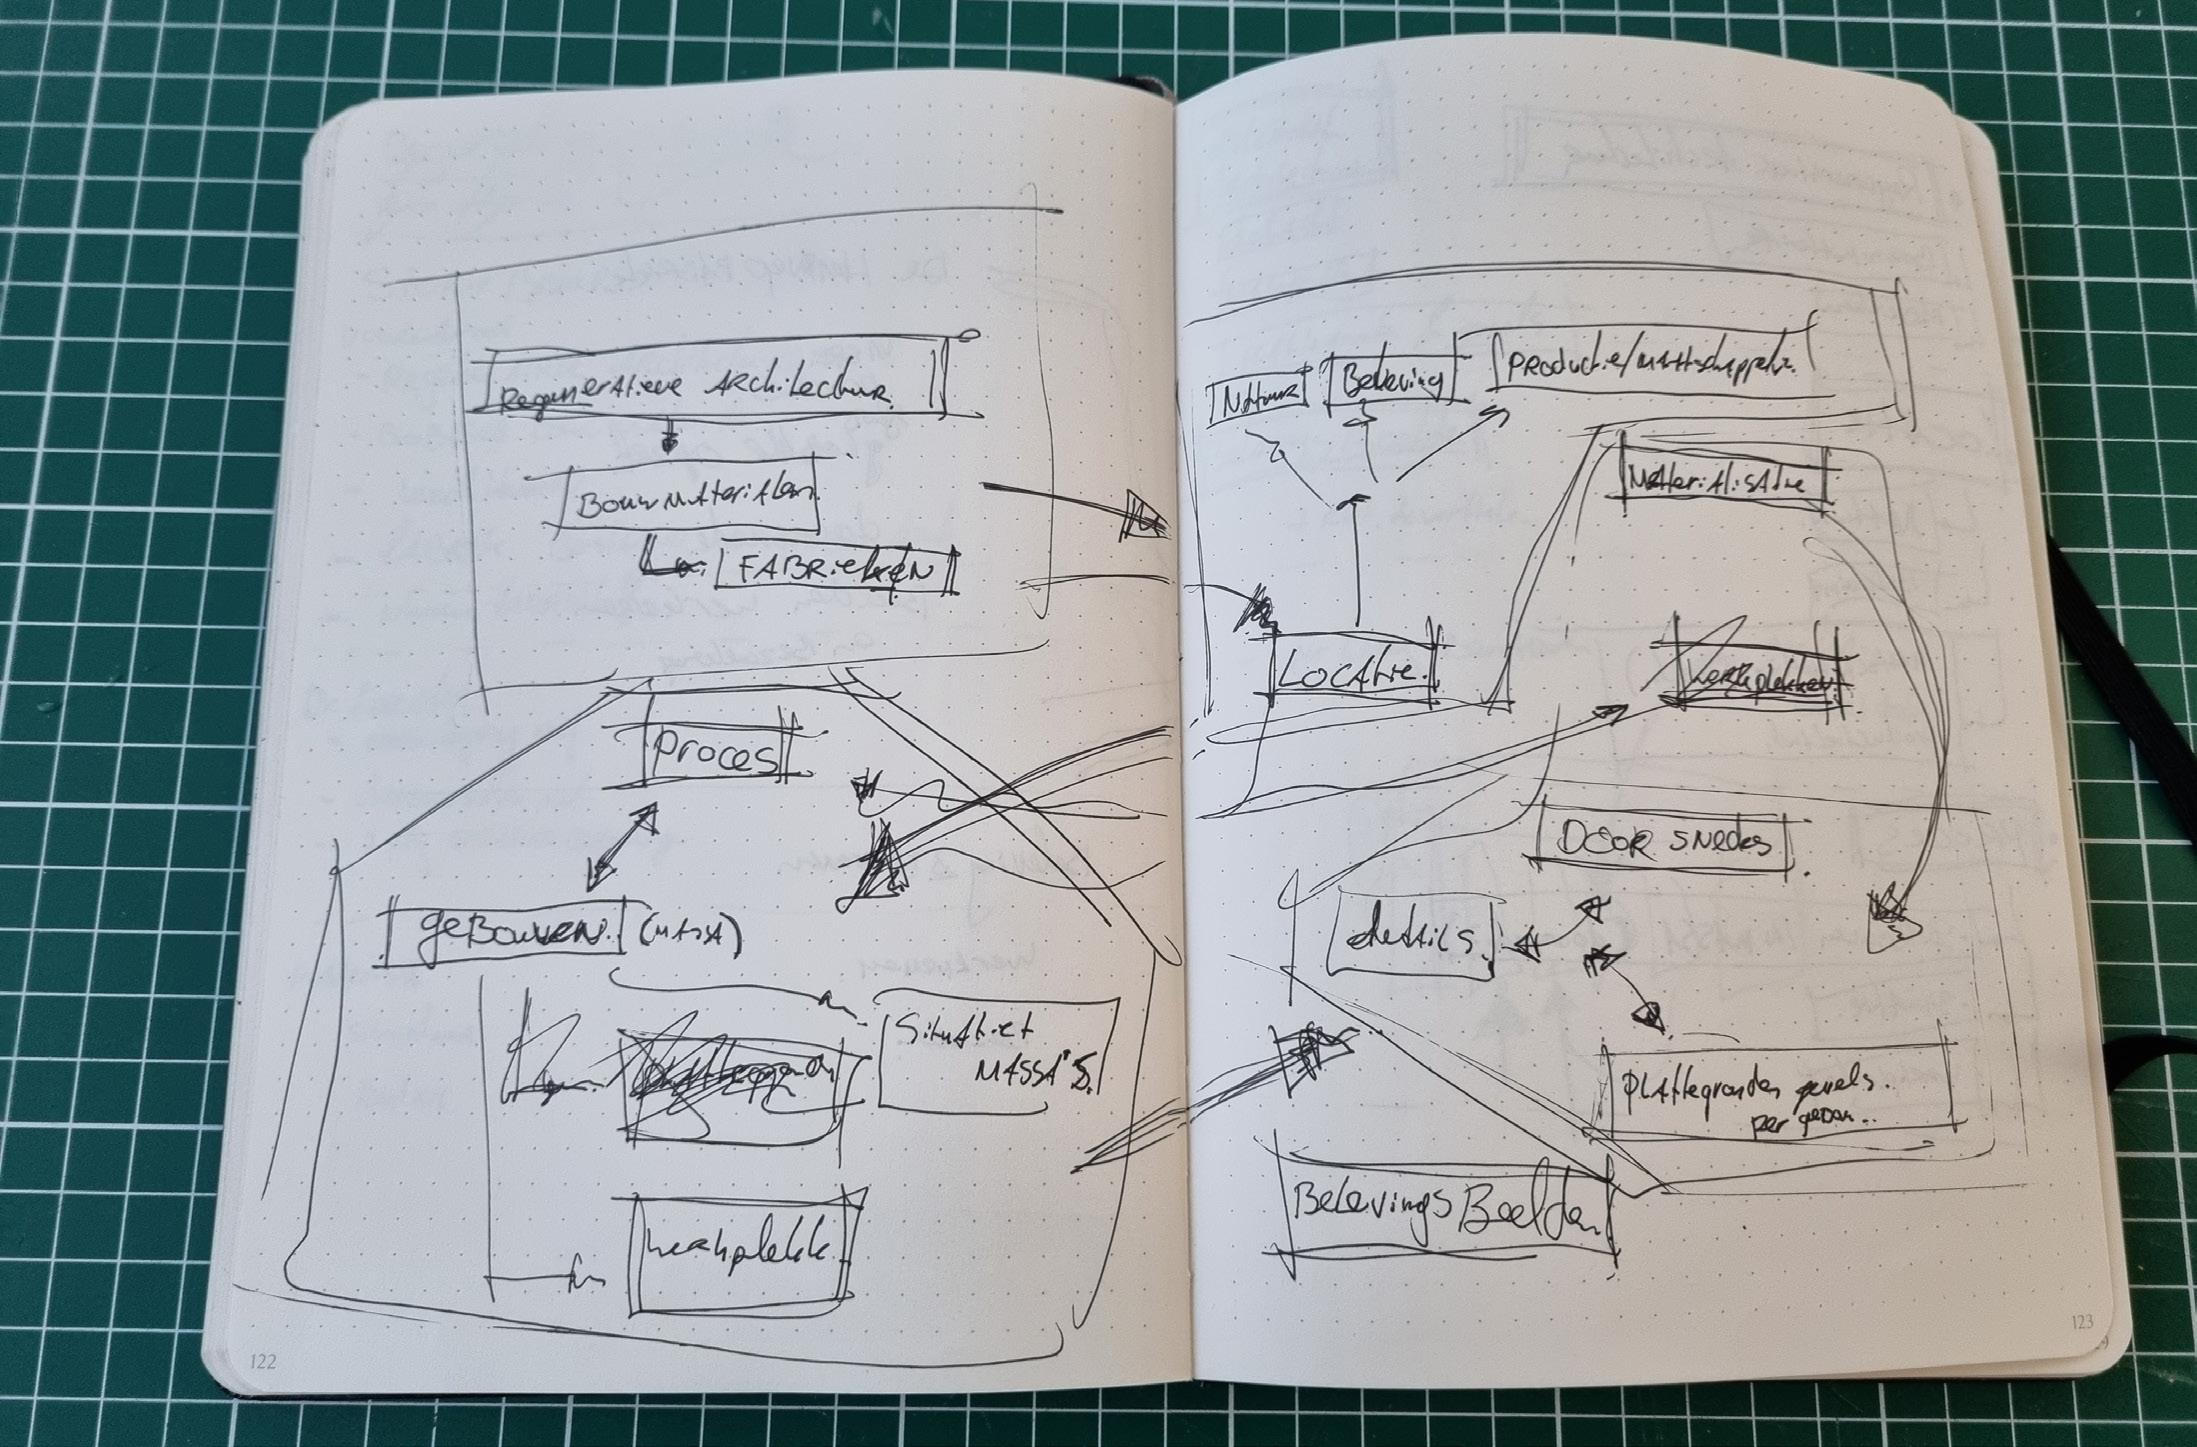 Regeneratieve Architectuur
Bouwmaterialen
FABrieken
proces
geBouwen. (MASSA)
Situatie+
MASSA'S.
werkplekk.
122
Natuur
Beleving
Productie/maatschappelijk.
Materialisatie
Locatie.
werkplekken
DOOR sNedes
details.
PLAttegronden gevels.
per gebouw..
Belevings Beelden
123